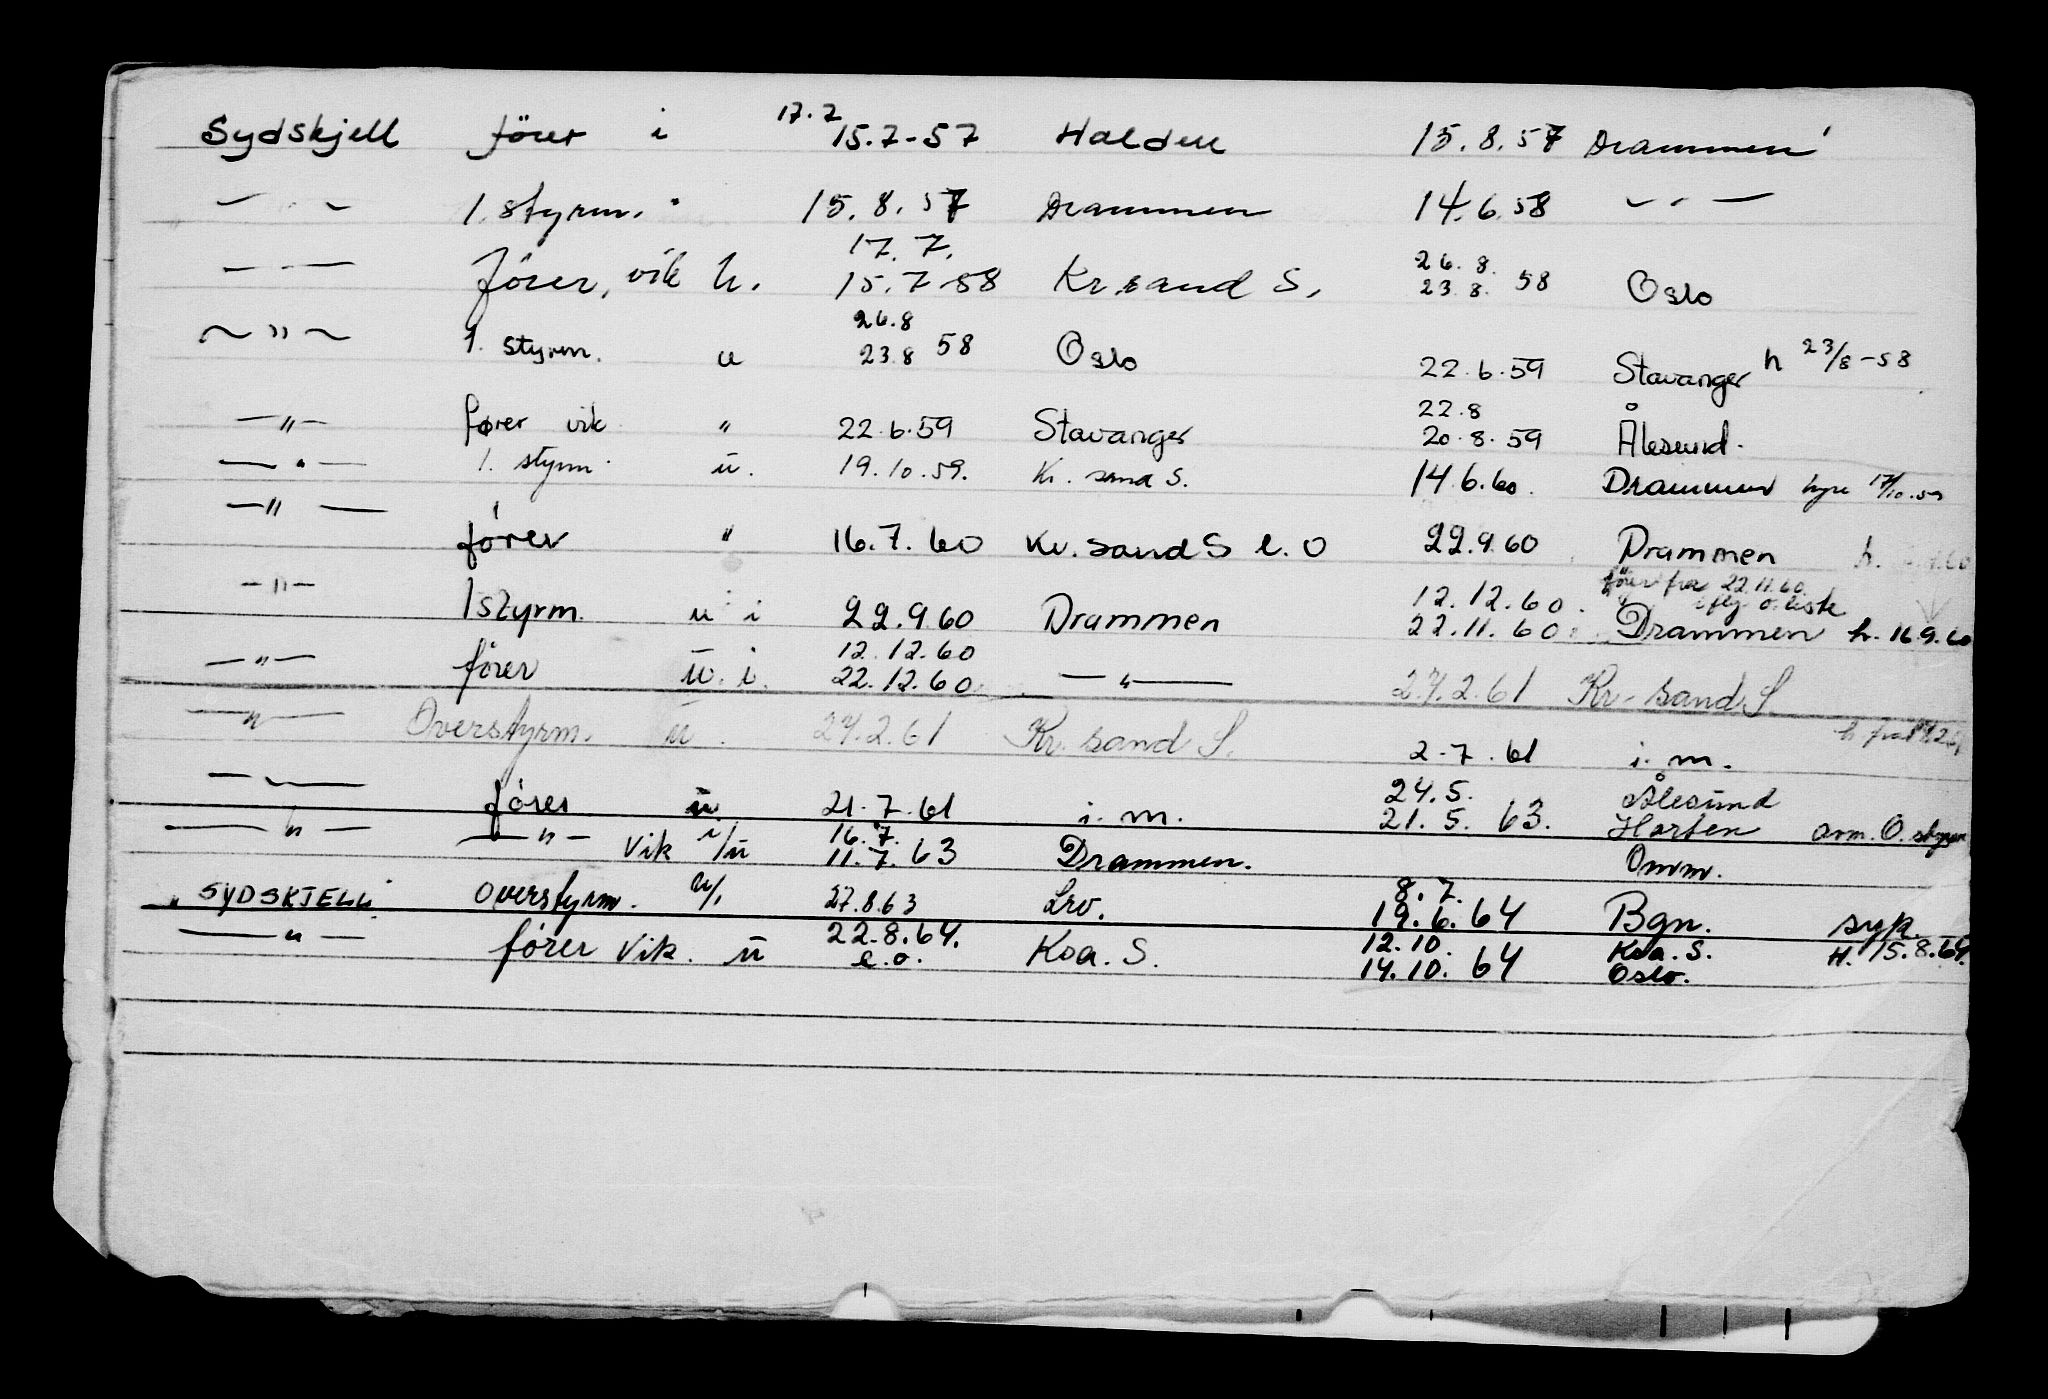 17.7
Sydskjell förer i 15.7-57 Halden 15.8.57 Drammen
— " — 1. styrm. " 15.8.57 Drammen 14.6.58 — " —
17.7. 26.8.
— " — förer, vik u. 15.7-58 Kr.sand S. 23.8. 58 Oslo
26.8
— " — 1. styrm. u 23.8 58 Oslo 22.6.59 Stavanger h 23/8-58
22.8 Å
— " — fører vik " 22.6.59 Stavanger 20.8.59 Ålesund.
— " — 1. styrm. u. 19.10.59. Kr. sand S. 14.6.60. Drammen hyre 17/10.59
— " — förer " 16.7.60 Kr. sand S e. O 22.9.60 Drammen h.
förer fra 22.11.60
12.12.60. iflg. o. liste
— " — 1 styrm. u i 22.9 60 Drammen 22.11.60 Drammen h. 16.9.60
12.12.60
— " — förer u. i. 22.12.60 — " — 27.2.61 Kr. sand S.
— " — Overstyrm. u. 27.2.61 Kr. sand S. 2.7.61 i. m. h fra
24.5. Ålesund
— " — förer u 21.7.61 i. m. 21.5. 63. Horten avm. O. styrm
16.7.
— " — — " — vik i/u 11.7.63 Drammen. Omm.
8.7.
SYDSKJELL overstyrm. u/. 27.8.63 Lrv. 19.6.64 Bgn. syk.
22.8.64. 12.10. Ksa. S. H. 15.8.64.
— " — förer vik. u e.o. Ksa. S. 14.10. 64 Oslo.